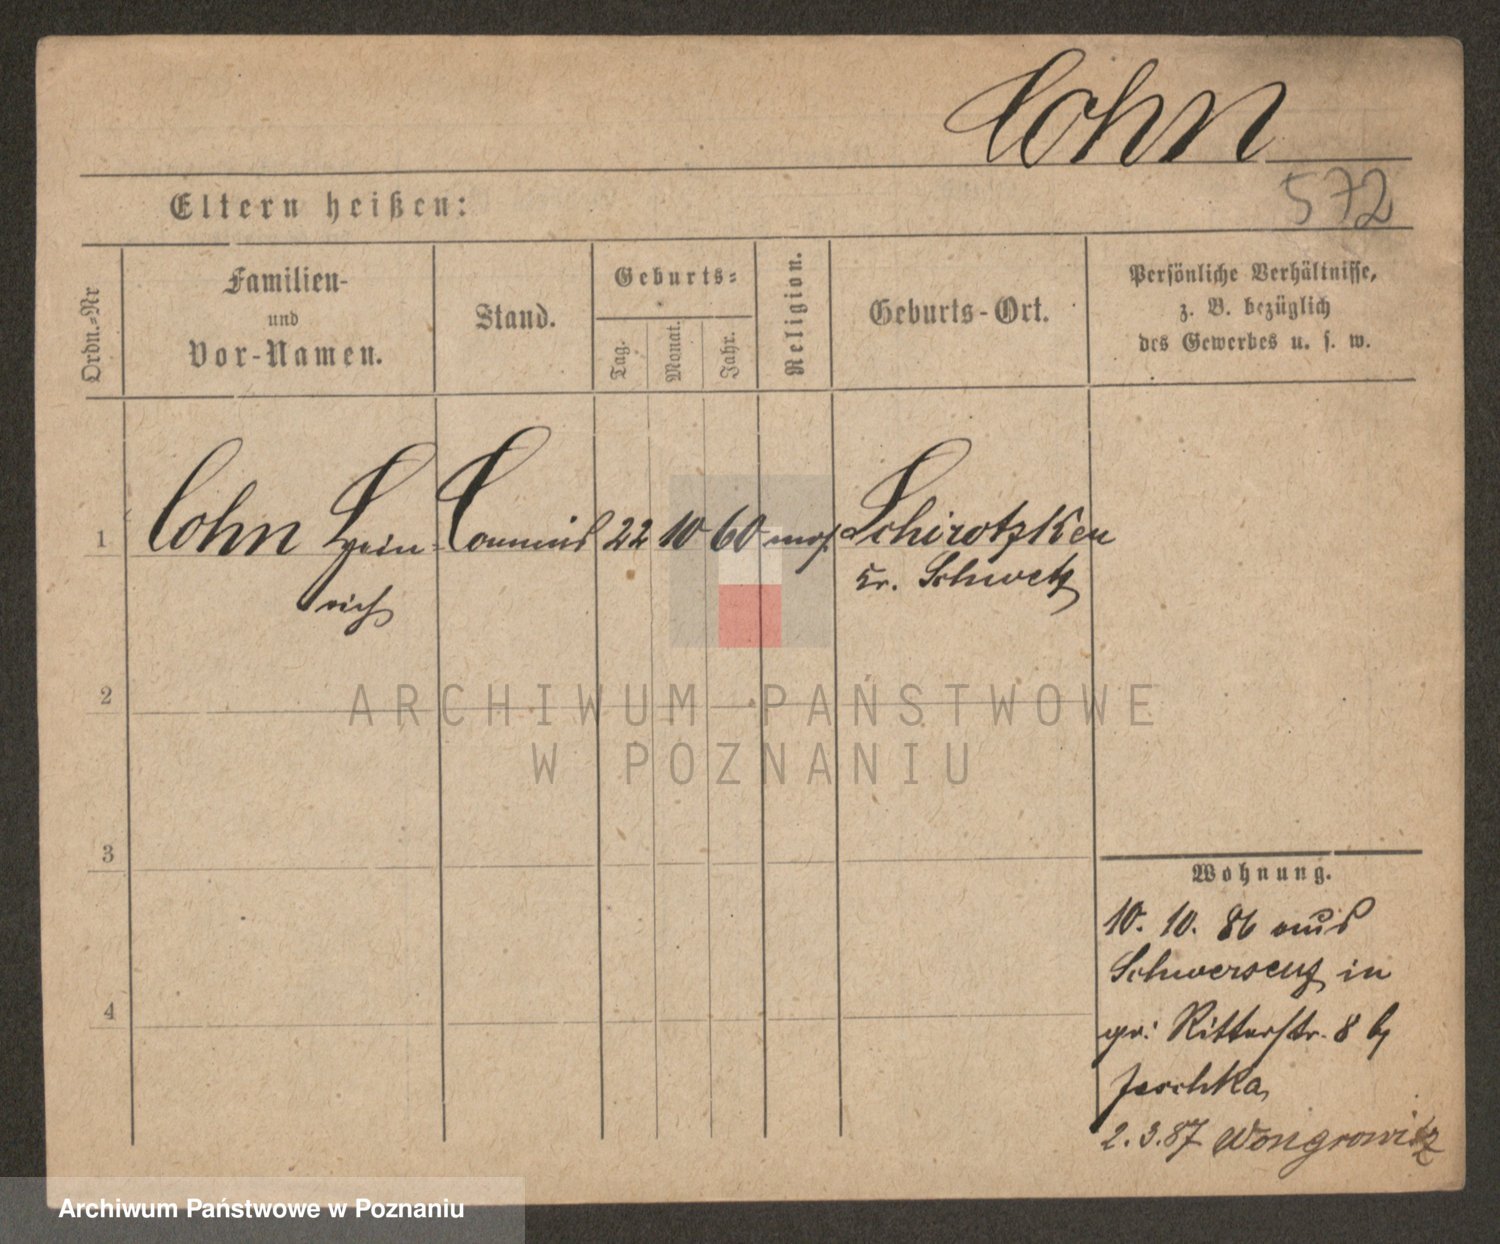 Cohn
572
Eltern heißen:
Ordn.-Nr
Familien-
und
Vor-Namen.
Stand.
Geburts-
Tag.
Monat.
Jahr.
Religion.
Geburts-Ort.
Persönliche Verhältnisse,
z. B. bezüglich
des Gewerbes u. s. w.
1
Cohn Hein-
rich
Commis
22
10
60
mos.
Schirotzken
Kr. Schwetz
2
3
4
Wohnung.
10. 10. 86 aus
Schwersenz in
gr: Ritterstr. 8 b/
Jeschka
2.3.87 Wongrowitz
ARCHIWUM PAŃSTWOWE
W POZNANIU
Archiwum Państwowe w Poznaniu